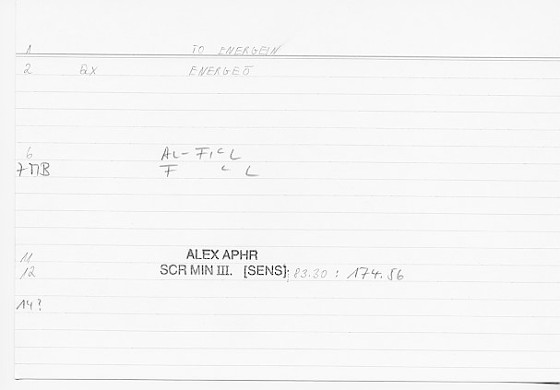 1 TO ENERGEIN
2 QX ENERGEŌ
6 AL- FIcL
7 MB F c L
11 ALEX APHR
12 SCR MIN III. [SENS]; 83.30 : 174.56
14?